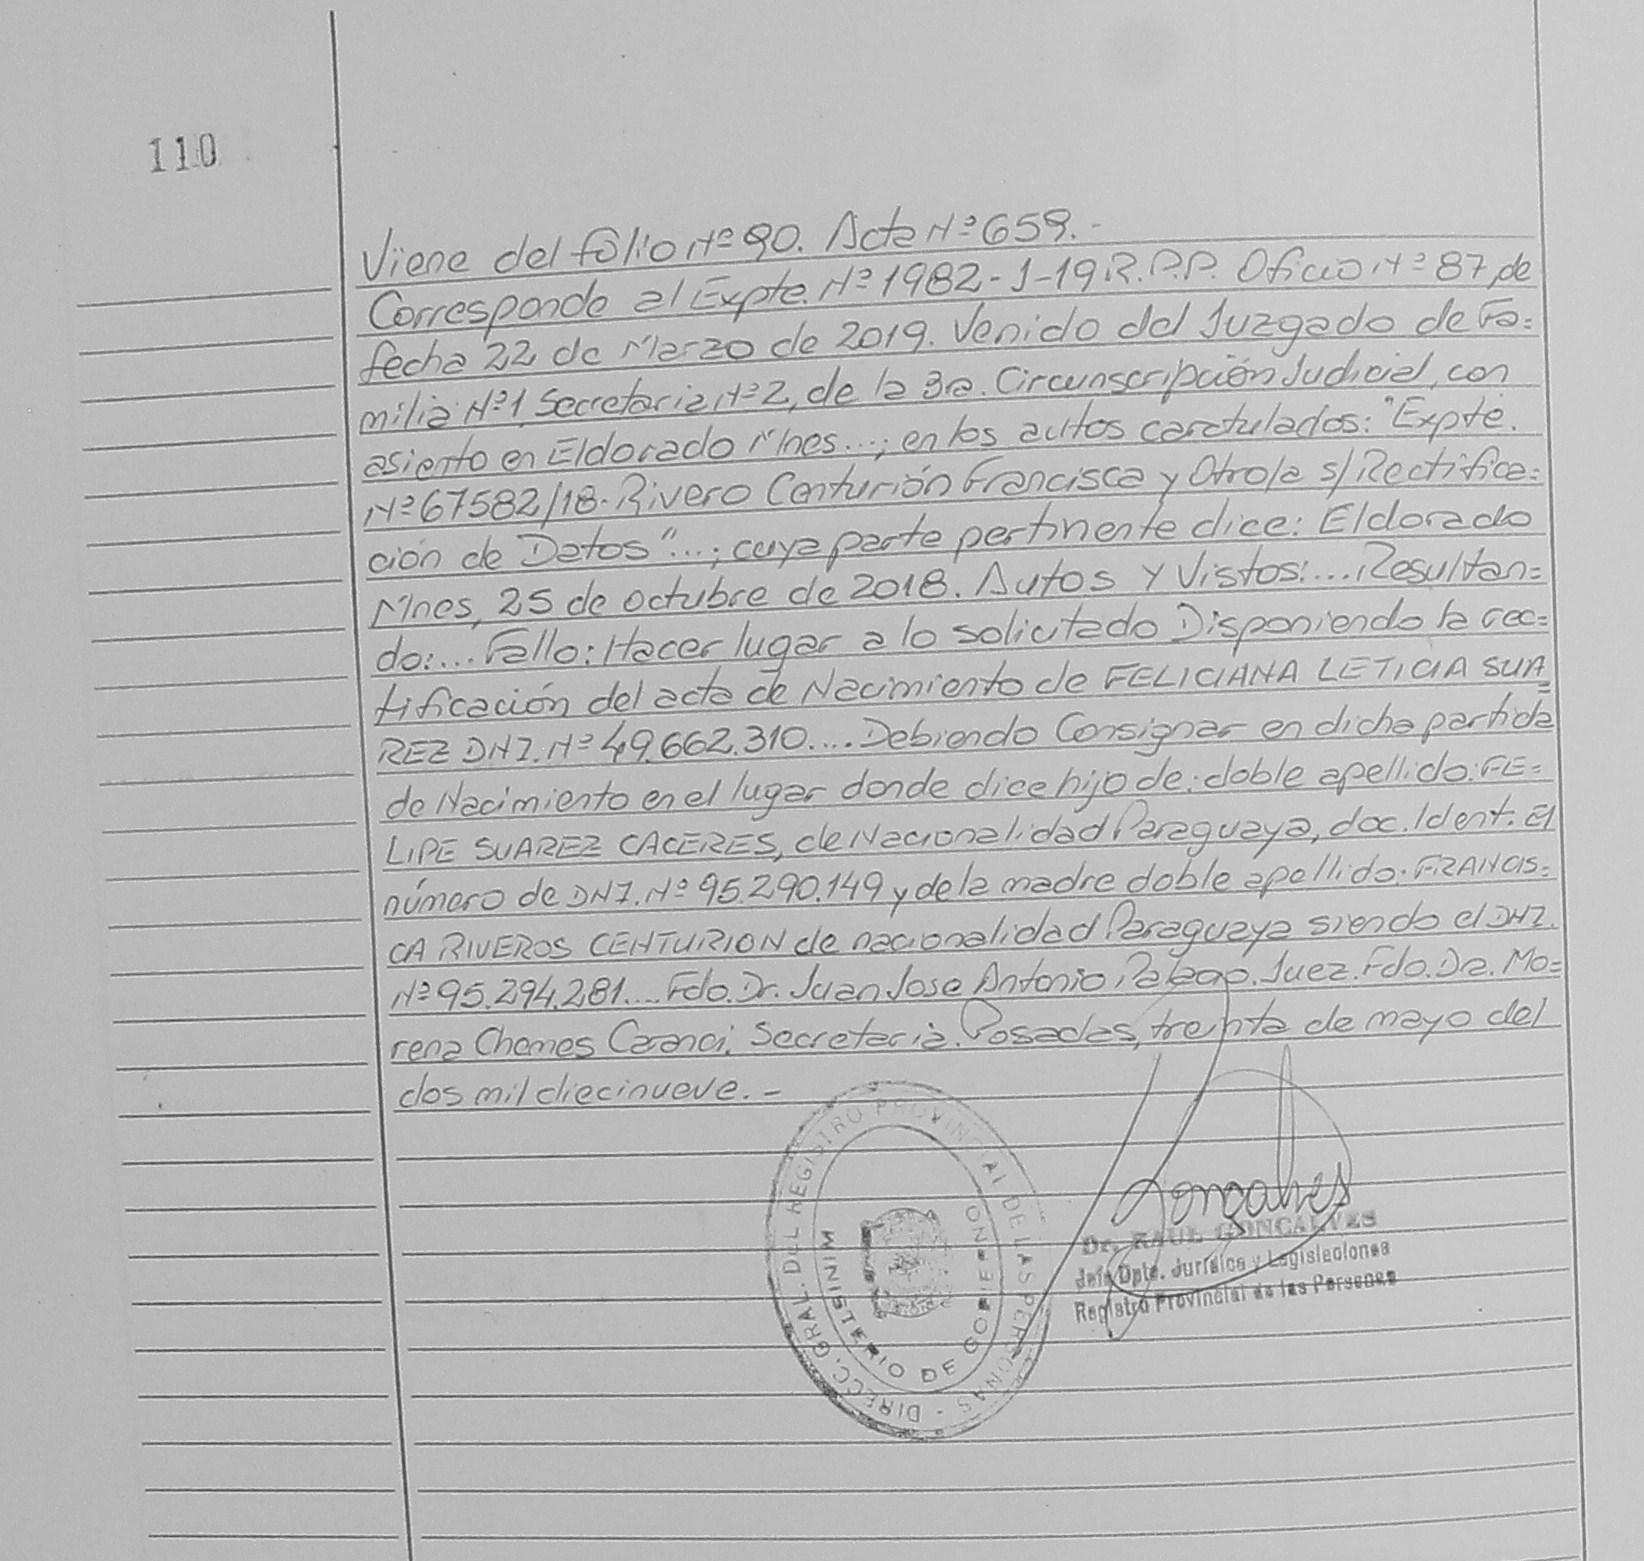 110
Viene del folio Nº 90. Acta Nº 659.-
Corresponde al Expte. Nº 1982-J-19 R.P.P. Oficio Nº 87 de
fecha 22 de Marzo de 2019. Venido del Juzgado de Fa=
milia Nº 1, Secretaria Nº 2, de la 3ra. Circunscripción Judicial, con
asiento en Eldorado Mnes...; en los autos caratulados: "Expte.
Nº 67582/18. Rivero Centurión Francisca y Otro/a s/ Rectifica=
ción de Datos"...; cuya parte pertinente dice: Eldorado
Mnes, 25 de octubre de 2018. Autos y Vistos:... Resultan=
do:... Fallo: Hacer lugar a lo solicitado Disponiendo la rec=
tificación del acta de Nacimiento de FELICIANA LETICIA SUA=
REZ DNI. Nº 49.662.310.... Debiendo Consignar en dicha partida
de Nacimiento en el lugar donde dice hijo de: doble apellido: FE=
LIPE SUAREZ CACERES, de Nacionalidad Paraguaya, doc. Ident: El
número de DNI. Nº 95.290.149 y de la madre doble apellido: FRANCIS=
CA RIVEROS CENTURION de nacionalidad Paraguaya siendo el DNI.
Nº 95.294.281.... Fdo. Dr. Juan Jose Antonio. Juez. Fdo. Dra. Mo=
rena Chemes Caranci. Secretaria. Posadas, treinta de mayo del
dos mil diecinueve.-
DIRECC. GRAL. DEL REGISTRO PROVINCIAL DE LAS PERSONAS -
MINISTERIO DE GOBIERNO
Goncalves
Dr. RAUL GONCALVES
Jefe Dpto. Jurídico y Legislaciones
Registro Provincial de las Personas